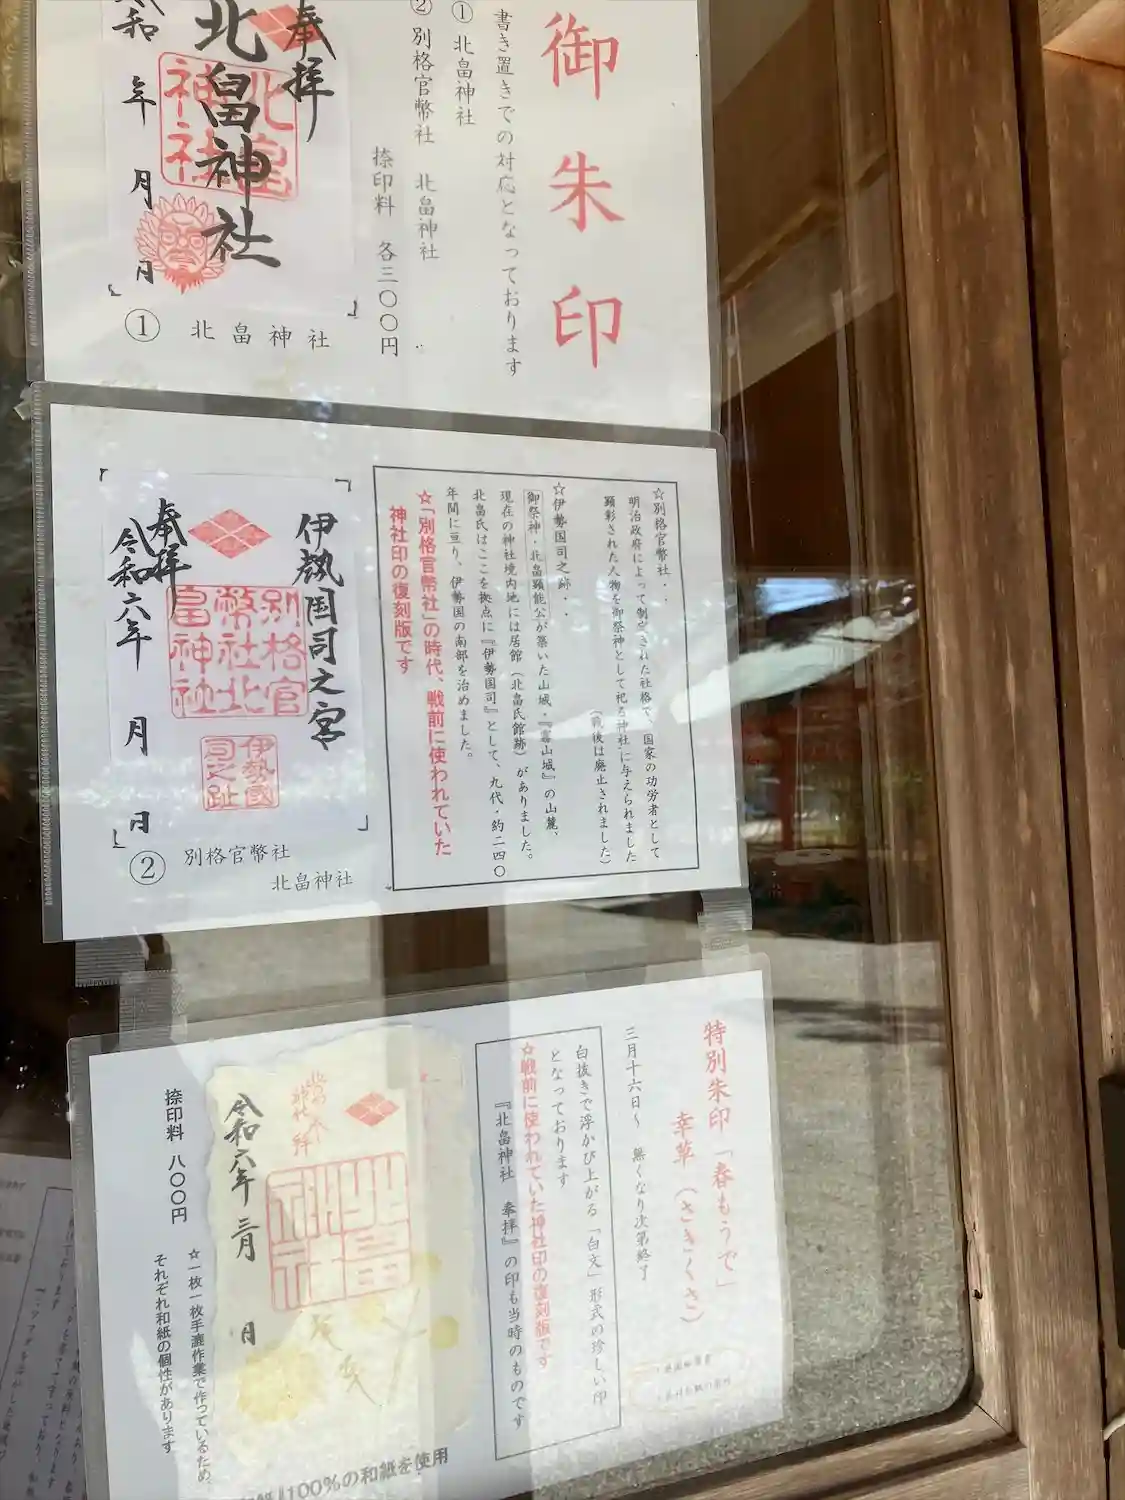 御朱印
書き置きでの対応となっております
① 北畠神社
② 別格官幣社 北畠神社
捺印料 各三〇〇円
奉拝
北畠神社
北畠神社
令和 年 月 日
① 北畠神社
☆別格官幣社・・
明治政府によって制定された社格で、国家の功労者として
顕彰された人物を御祭神として祀る神社に与えられました
(戦後は廃止されました)
☆伊勢国司之跡・・
御祭神・北畠顕能公が築いた山城・『霧山城』の山麓、
現在の神社境内地には居館(北畠氏館跡)がありました。
北畠氏はここを拠点に『伊勢国司』として、九代・約二四〇
年間に亘り、伊勢国の南部を治めました。
☆「別格官幣社」の時代、戦前に使われていた
神社印の復刻版です
伊勢国司之宮
別格官
幣社北
畠神社
伊勢國
司之趾
奉拝
令和六年 月 日
② 別格官幣社
北畠神社
特別朱印「春もうで」
幸草(さきくさ)
三月十六日~ 無くなり次第終了
白抜きで浮かび上がる「白文」形式の珍しい印
となっております
☆戦前に使われていた神社印の復刻版です
『北畠神社 奉拝』の印も当時のものです
北畠
神社
令和六年 三月 日
捺印料 八〇〇円
☆一枚一枚手漉作業で作っているため、
それぞれ和紙の個性があります
100%の和紙を使用